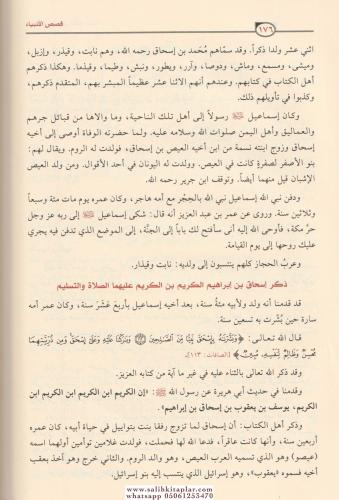 قصص الأنبياء
١٧٦
اثني عشر ولداً ذكراً. وقد سمّاهم مُحَمد بن إسحاق رحمه الله، وهم نابت، وقيذر، وإزبل،
وميشى، ومسمع، وماش، ودوصا، وآرر، ويطور، ونبش، وطيما، وقيذما. وهكذا ذكرهم
أهل الكتاب في كتابهم. وعندهم أنهم الاثنا عشر عظيماً المبشر بهم، المتقدم ذكرهم،
وكذبوا في تأويلهم ذلك.
وكان إسماعيل ﷺ رسولاً إلى أهل تلك الناحية، وما والاها من قبائل جرهم
والعماليق وأهل اليمن صلوات الله وسلامه عليه. ولما حضرته الوفاة أوصى إلى أخيه
إسحاق وزوج ابنته نسمة من ابن أخيه العيص بن إسحاق، فولدت له الروم. ويقال لهم:
بنو الأصفر لصفرةٍ كانت في العيص. وولدت له اليونان في أحد الأقوال. ومن ولد العيص
الإشبان قيل منهما أيضاً. وتوقف ابن جرير رحمه الله.
ودفن نبي الله إسماعيل نبي الله بالحِجْر مع أمه هاجر، وكان عمره يوم مات مئة وسبعاً
وثلاثين سنة. وروي عن عمر بن عبد العزيز أنه قال: شكى إسماعيل ﷺ إلى ربه عز وجل
حرّ مكة، فأوحى الله إليه أني سأفتح لك باباً إلى الجنَّة، إلى الموضع الذي تدفن فيه يجري
عليك روحها إلى يوم القيامة.
وعربُ الحجاز كلهم ينتسبون إلى ولديه: نابت وقيذار.
ذكر إسحاق بن إبراهيم الكريم بن الكريم عليهما الصلاة والتسليم
قد قدمنا أنه ولد ولأبيه مئة سنة، بعد أخيه إسماعيل بأربعَ عَشَرَ سنة، وكان عمر أمه
سارة حين بُشّرت به تسعين سنة.
قال الله تعـالى: ﴿وَبَشَّرْنَاهُ بِإِسْحَاقَ نَبِيًّا مِّنَ الصَّالِحِينَ ۝ وَبَارَكْنَا عَلَيْهِ وَعَلَىٰ إِسْحَاقَ وَمِن ذُرِّيَّتِهِمَا
مُحْسِنٌ وَظَالِمٌ لِّنَفْسِهِ مُبِينٌ﴾ [الصافات: ١١٣].
وقد ذكر الله تعالى بالثناء عليه في غير ما آية من كتابه العزيز.
وقدمنا في حديث أبي هريرة عن رسول الله ﷺ: «إن الكريم ابن الكريم ابن الكريم ابن
الكريم، يوسف بن يعقوب بن إسحاق بن إبراهيم».
وذكر أهل الكتاب: أن إسحاق لما تزوج رفقا بنت بتوابيل في حياة أبيه، كان عمره
أربعين سنة، وأنها كانت عاقراً، فدعا الله لها فحملت، فولدت غلامين توأمين أولهما اسمه
(عيصو) وهو الذي تسميه العرب العيص، وهو والد الروم. والثاني خرج وهو آخذ بعقب
أخيه فسموه «يعقوب»، وهو إسرائيل الذي ينتسب إليه بنو إسرائيل.
www.salihkitaplar.com
whatsapp 05061253470